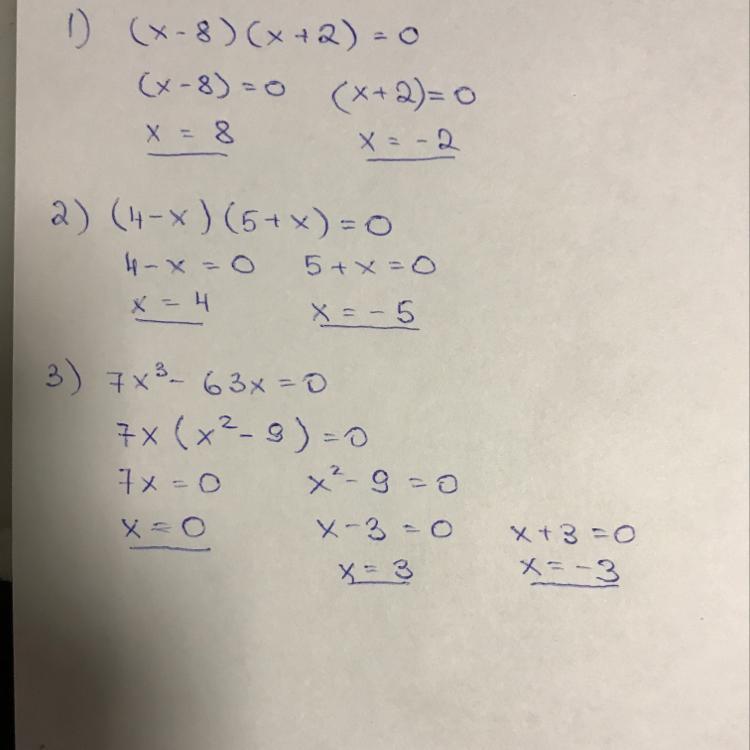 1) (x-8)(x+2) = 0
(x-8) = 0 (x+2) = 0
x = 8 x = -2
2) (4-x)(5+x) = 0
4-x = 0 5+x = 0
x = 4 x = -5
3) 7x³ - 63x = 0
7x(x² - 9) = 0
7x = 0 x² - 9 = 0
x = 0 x - 3 = 0 x + 3 = 0
x = 3 x = -3